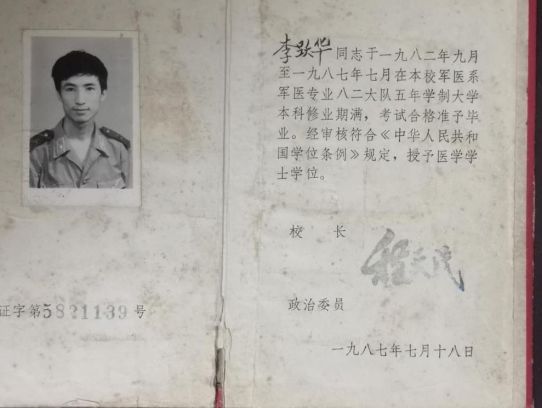 证字第5821139号
李跃华同志于一九八二年九月
至一九八七年七月在本校军医系
军医专业八二大队五年学制大学
本科修业期满，考试合格准予毕
业。经审核符合《中华人民共和
国学位条例》规定，授予医学学
士学位。
校 长 程天民
政治委员
一九八七年七月十八日